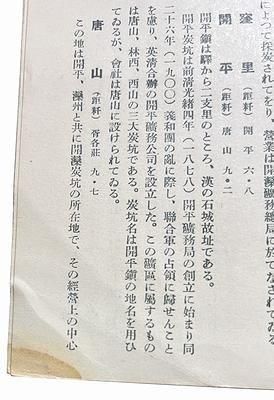 よつて採炭されてをり、營業は開灤礦務總局に於てなされてゐる
窪里 (距軒) 開平 六・八
開平 (距軒) 唐山 九・二
開平鎭は驛から二支里のところ、漢の石城故址である。
開平炭坑は前清光緒四年(一八七八)開平礦務局の創立に始まり同
二十六年(一九〇〇)義和團の亂に際し、聯合軍の占領に歸せんこと
を慮り、英清合辦の開平礦務公司を設立した。この礦區に屬するもの
は唐山、林西、西山の三大炭坑である。炭坑名は開平鎭の地名を用ひ
てゐるが、會社は唐山に設けられてゐる。
唐山 (距軒) 胥各莊 九・七
この地は開平、灤州と共に開灤炭坑の所在地で、その經營上の中心